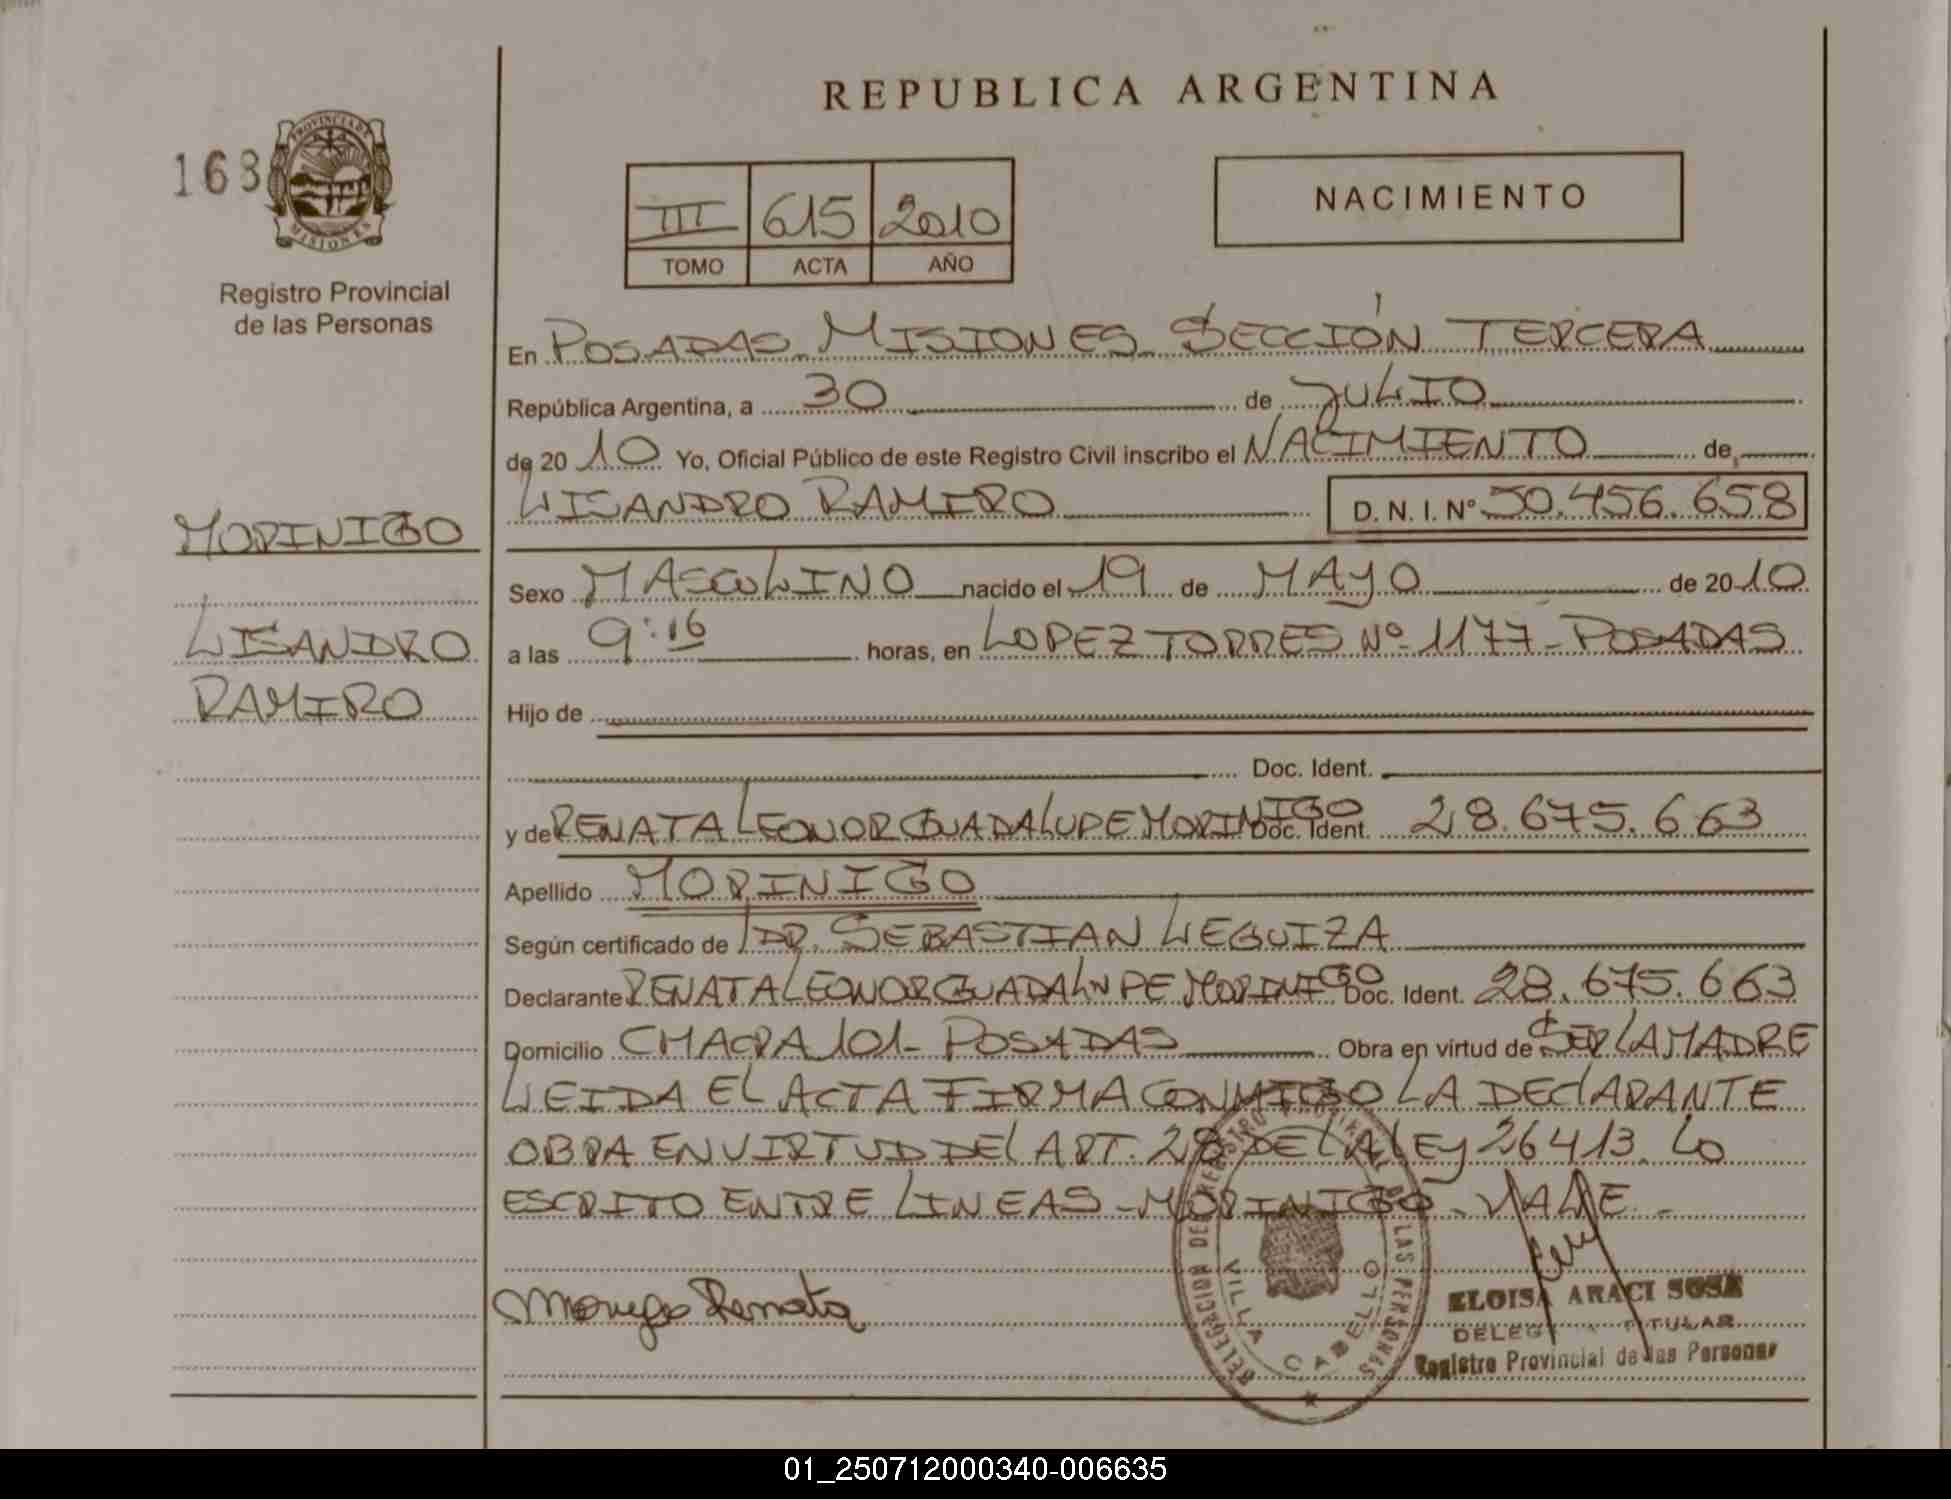 REPUBLICA ARGENTINA
163
PROVINCIA DE
MISIONES
Registro Provincial
de las Personas
III 615 2010
TOMO ACTA AÑO
NACIMIENTO
En POSADAS MISIONES SECCIÓN TERCERA
República Argentina, a 30 de JULIO
de 2010 Yo, Oficial Público de este Registro Civil inscribo el NACIMIENTO de
LISANDRO RAMIRO D. N. I. Nº 50.456.658
MORINIGO
LISANDRO
RAMIRO
Sexo MASCULINO nacido el 19 de MAYO de 2010
a las 9:16 horas, en LOPEZ TORRES Nº 1177 - POSADAS
Hijo de
Doc. Ident.
y de RENATA LEONOR GUADALUPE MORINIGO Doc. Ident. 28.675.663
Apellido MORINIGO
Según certificado de DR. SEBASTIAN LEGUIZA
Declarante RENATA LEONOR GUADALUPE MORINIGO Doc. Ident. 28.675.663
Domicilio CHACRA 101 - POSADAS Obra en virtud de SER LA MADRE
LEIDA EL ACTA FIRMA CONMIGO LA DECLARANTE
OBRA EN VIRTUD DEL ART. 28 DE LA LEY 26413. LO
ESCRITO ENTRE LINEAS - MORINIGO - VALE -
Renata
DELEGACION DEL REGISTRO LAS PERSONAS
VILLA CABELLO
ELOISA ARACI SOSA
TITULAR
Registro Provincial de las Personas
01_250712000340-006635